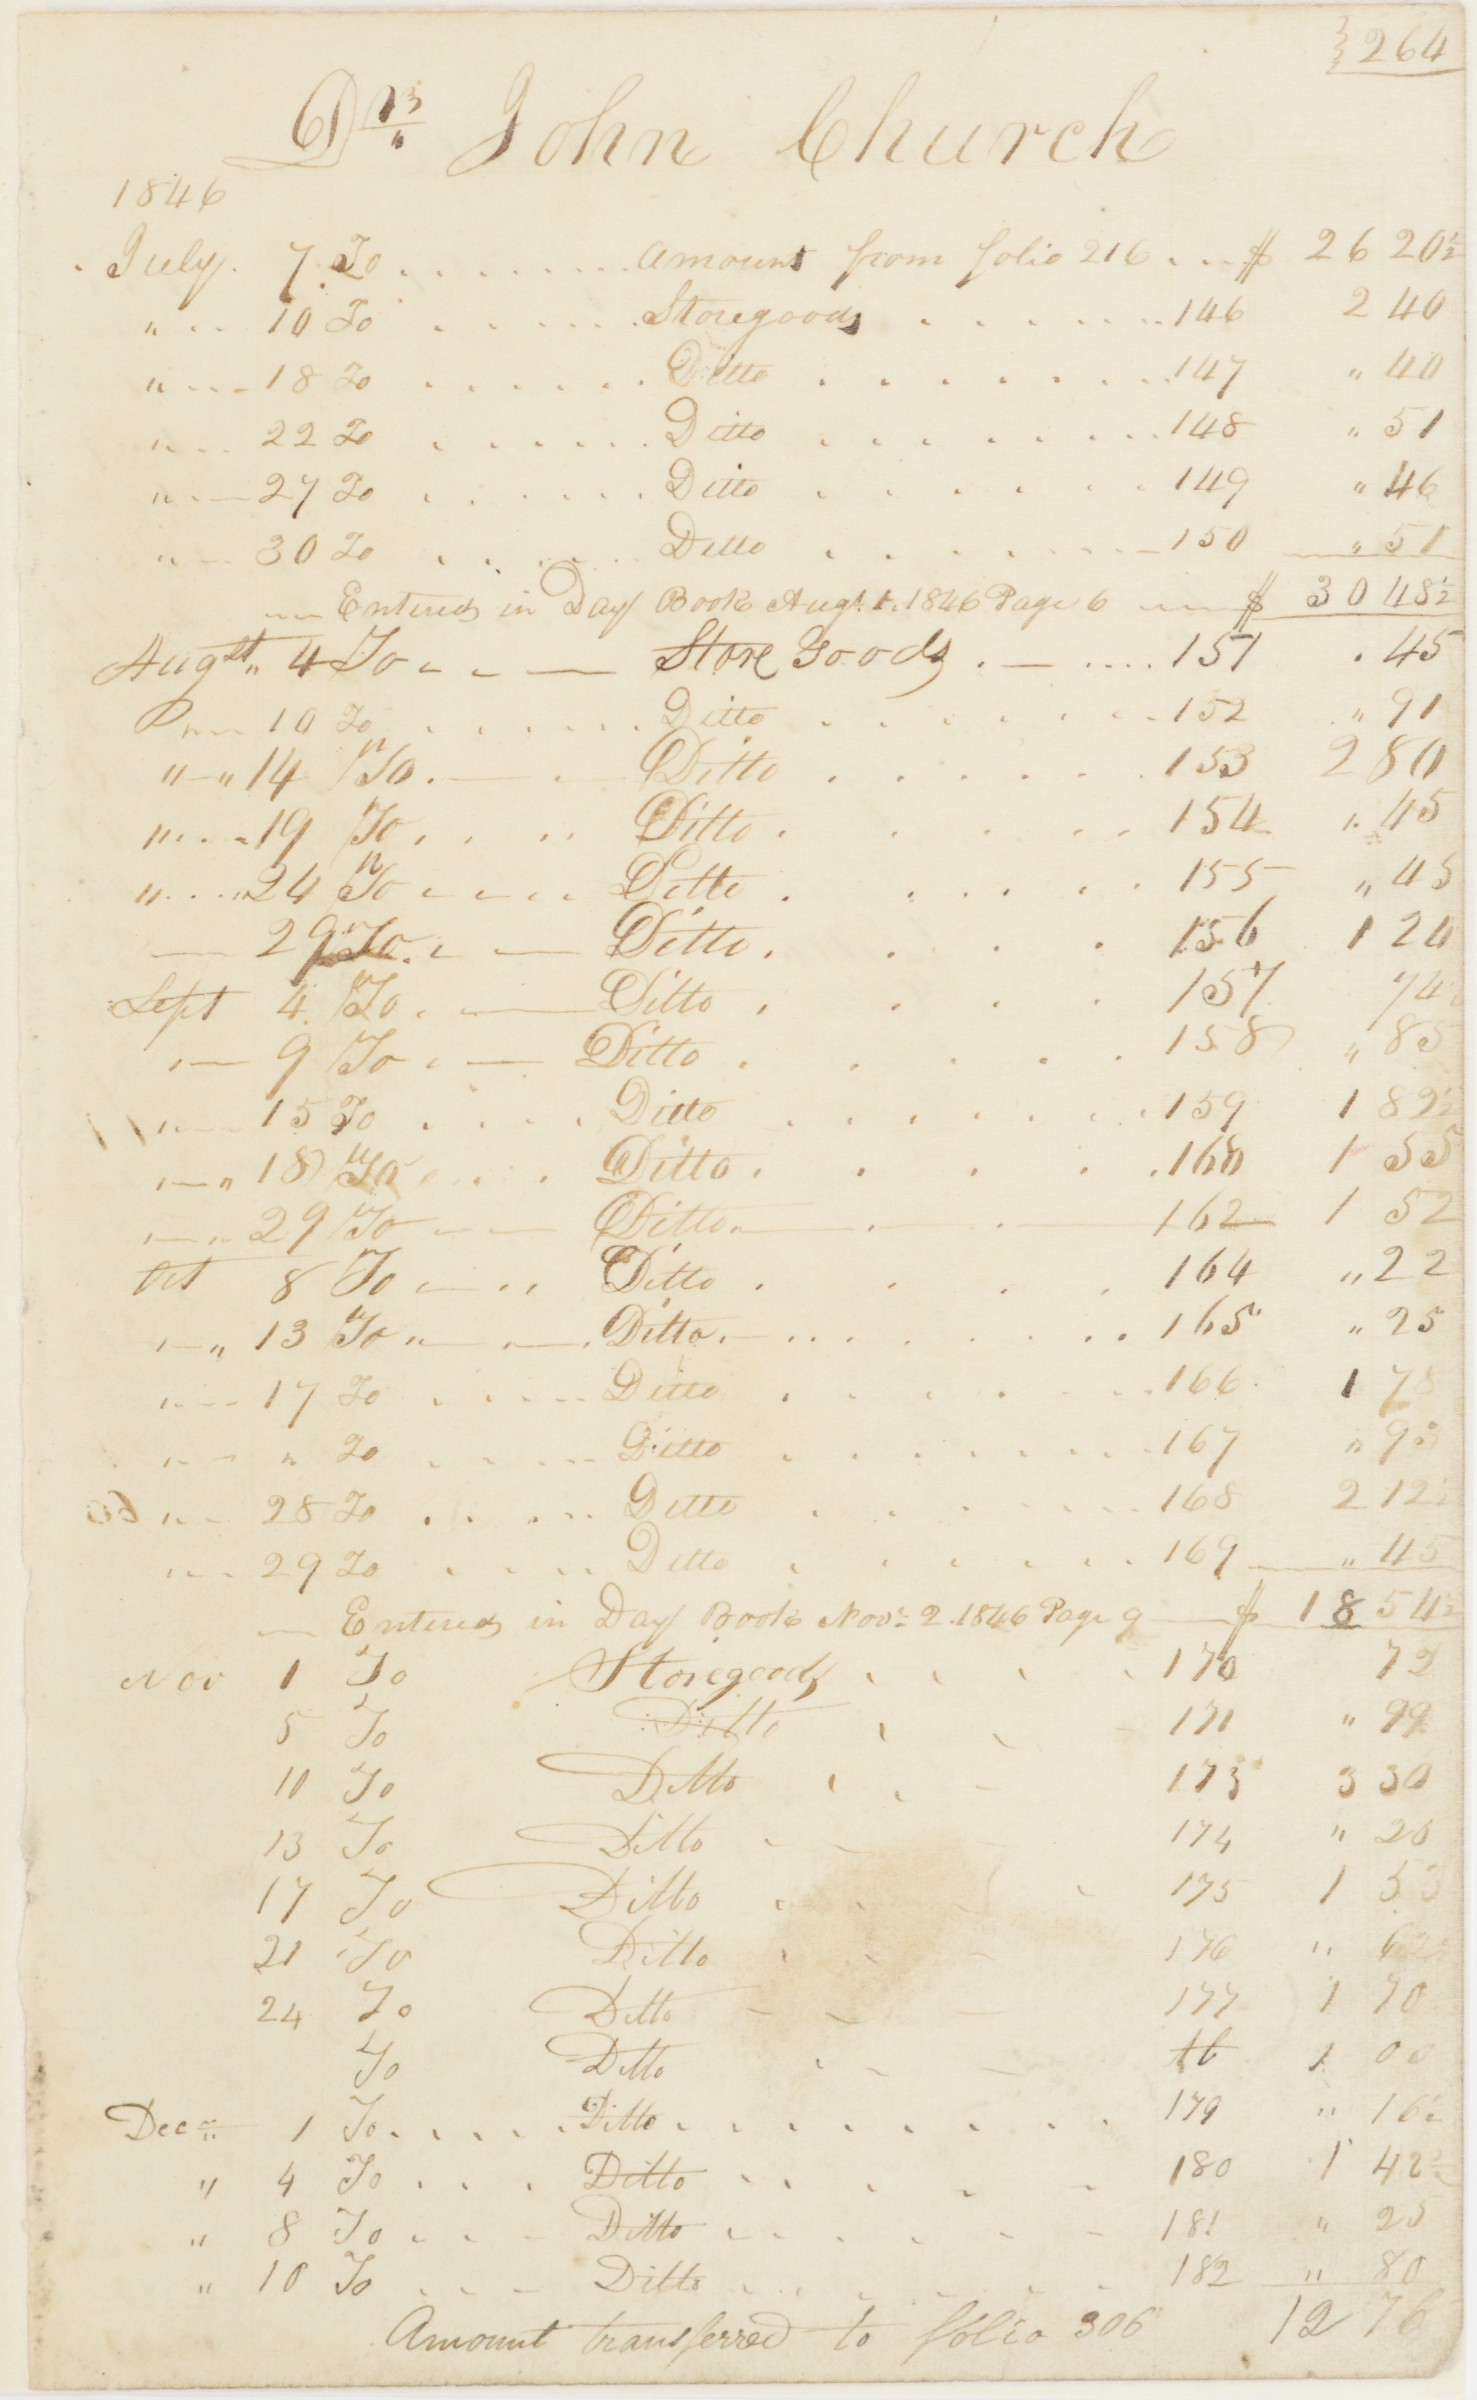 264
Dr. John Church
1846
July 7 To amount from folio 216 $ 26 20½
" 10 To Storegoods 146 2 40
" 18 To Ditto 147 " 40
" 22 To Ditto 148 " 51
" 27 To Ditto 149 " 46
" 30 To Ditto 150 " 51
Entered in Day Book Augt. 1. 1846 Page 6 $ 30 48½
Augst " 4 To Store Goods 151 . 45
" 10 To Ditto 152 " 91
" " 14 To Ditto 153 2 80
" 19 To Ditto 154 " 45
" 24 To Ditto 155 " 45
29 To Ditto 156 1 20
Sept 4 To Ditto 157 74
9 To Ditto 158 " 85
15 To Ditto 159 1 82½
" 18 To Ditto 160 1 55
" 29 To Ditto 162 1 52
Oct 8 To Ditto 164 " 22
" 13 To Ditto 165 " 25
" 17 To Ditto 166 1 78
" " To Ditto 167 "
" 28 To Ditto 168 2 12½
" 29 To Ditto 169 " 45
Entered in Day Book Novr 2. 1846 Page 9 $ 18 54½
Nov 1 To Storegoods 170 72
5 To Ditto 171 " 99
10 To Ditto 173 3 30
13 To Ditto 174 " 20
17 To Ditto 175 1
21 To Ditto 176 "
24 To Ditto 177 1 70
To Ditto 1 00
Decr 1 To Ditto 179 " 16½
" 4 To Ditto 180 1 42½
" 8 To Ditto 181 " 25
" 10 To Ditto 182 " 80
Amount transferred to folio 306 12 76